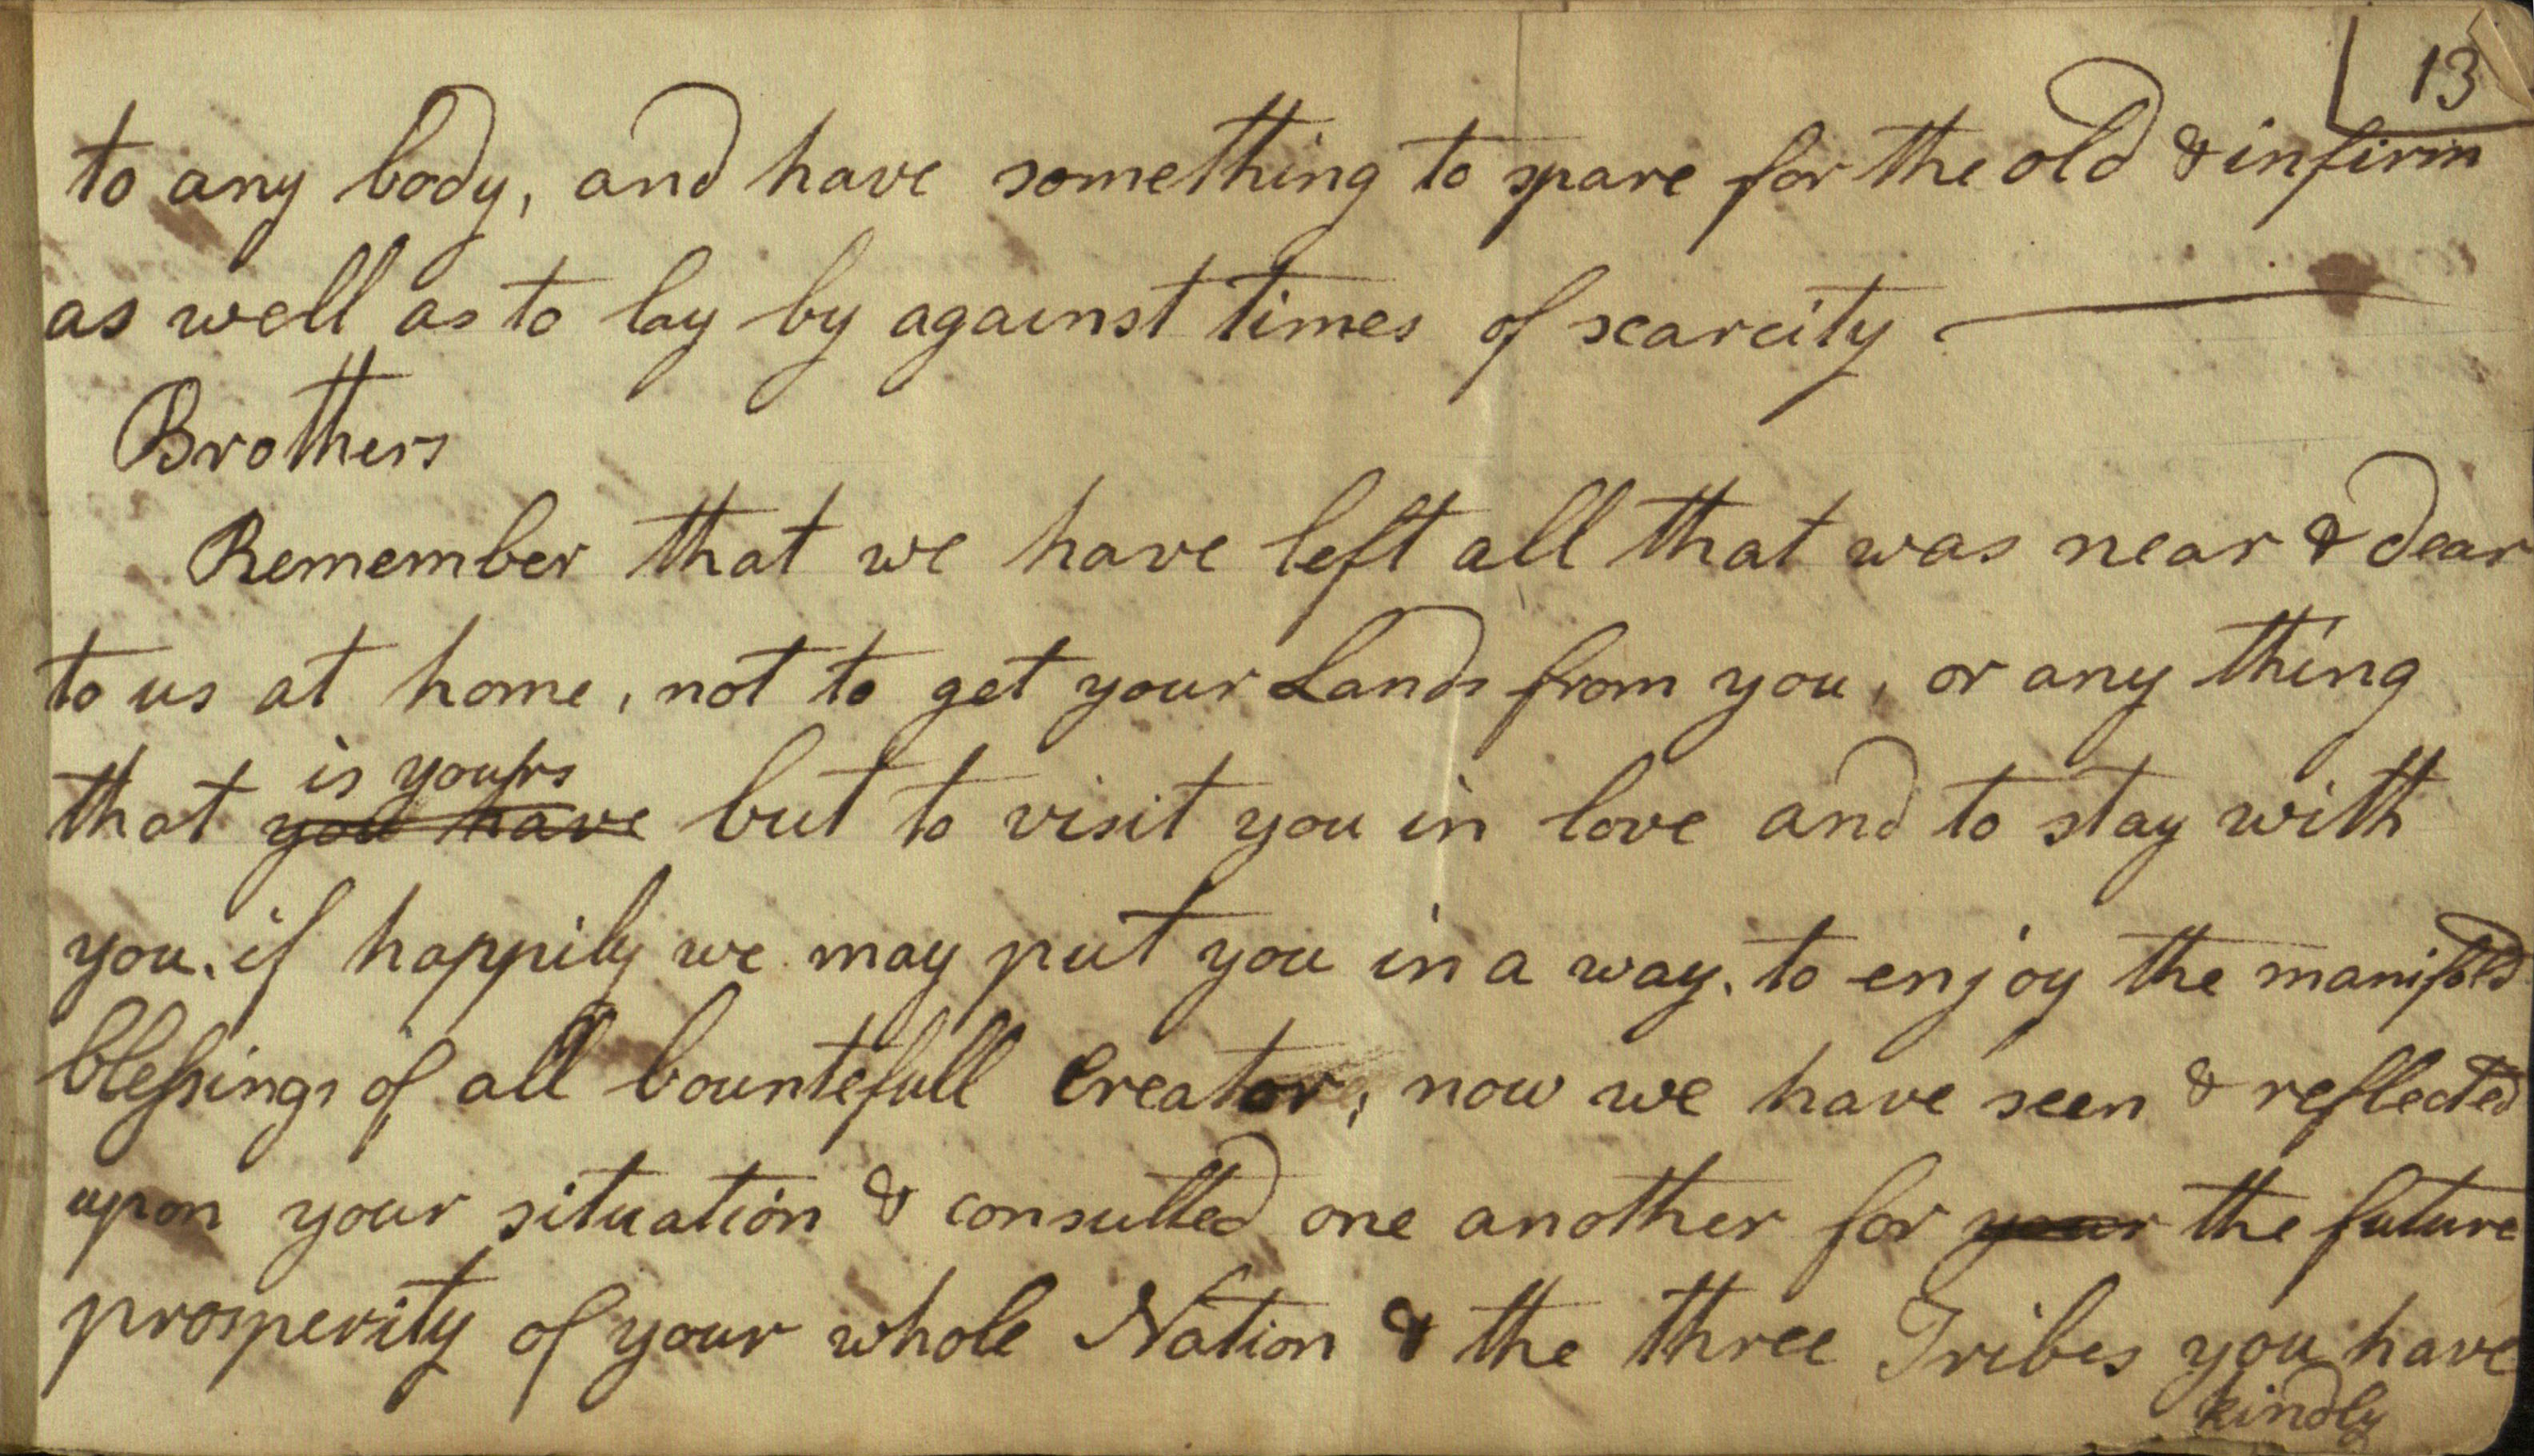 13
to any body, and have something to spare for the old & infirm
as well as to lay by against times of scarcity
Brothers
Remember that we have left all that was near & dear
to us at home, not to get your Lands from you, or any thing
is yours
that you have but to visit you in love and to stay with
you. if happily we may put you in a way. to enjoy the manifold
blessings of all bountefull Creator, now we have seen & reflected
upon your situation & consulted one another for your the future
prosperity of your whole Nation & the three Tribes you have
kindly